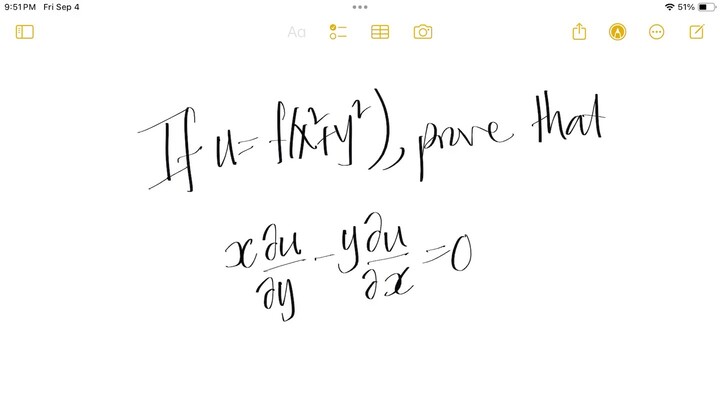 9:51 PM Fri Sep 4
51%
Aa
If u = f(x²+y²), prove that
x ∂u/∂y - y ∂u/∂x = 0